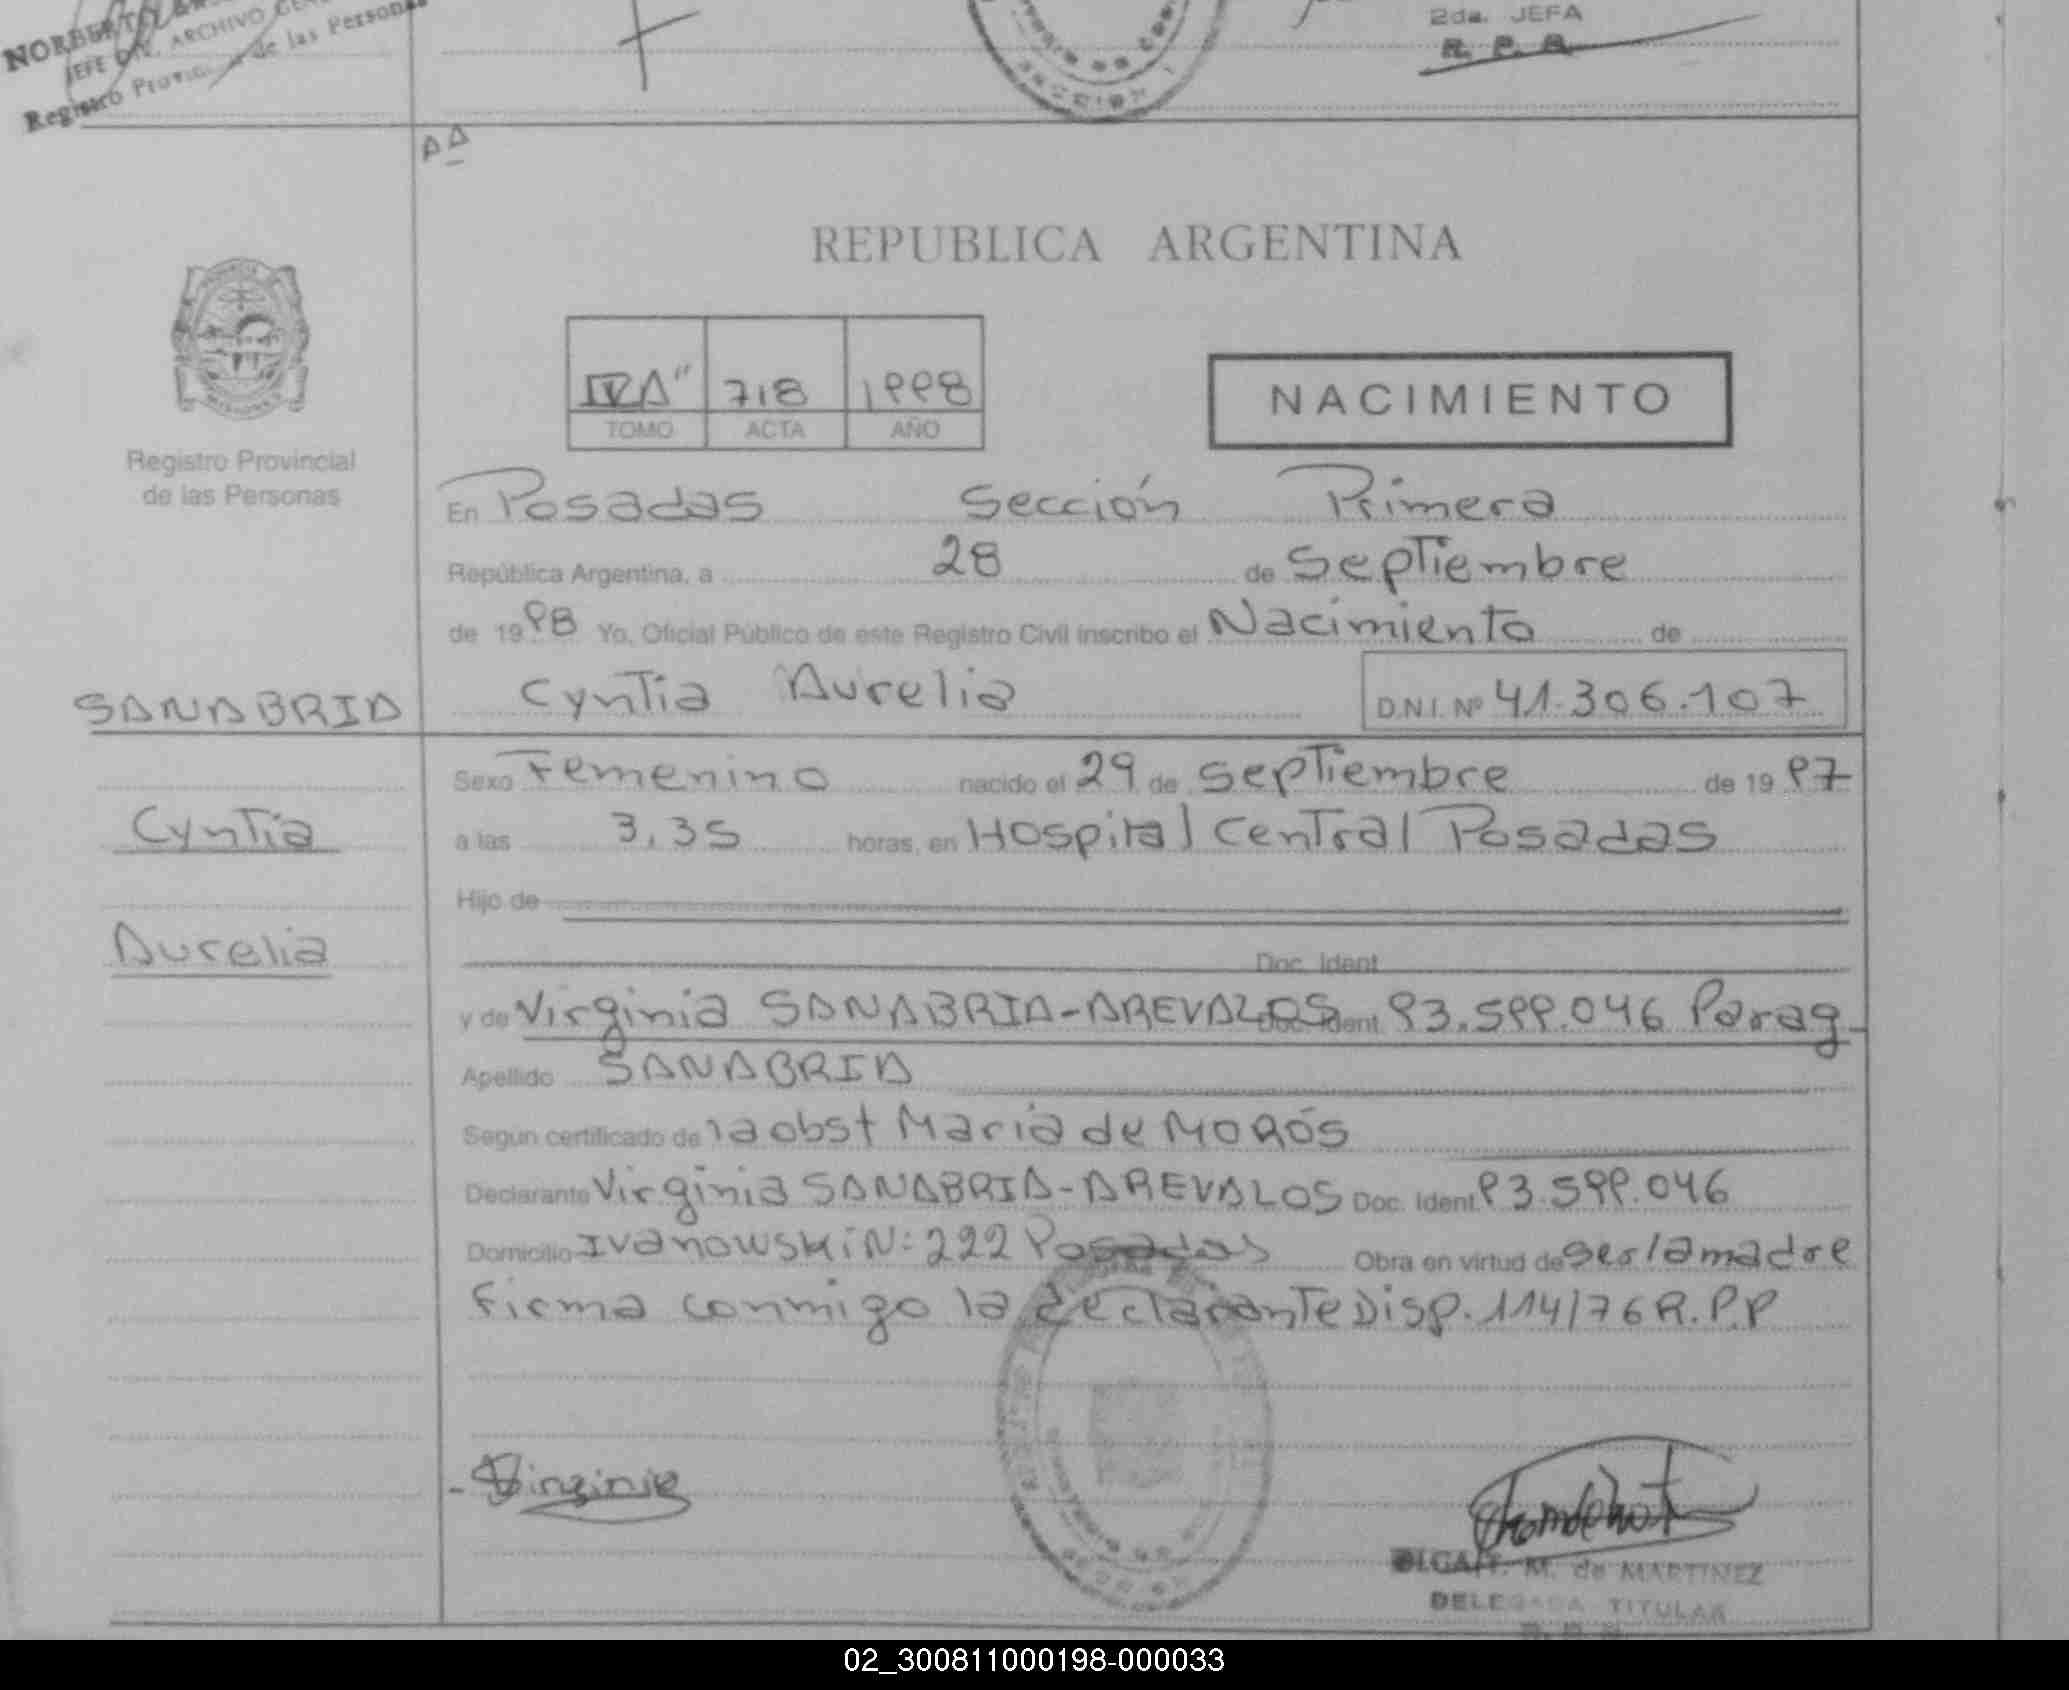 NORBERTO
JEFE DIV. ARCHIVO GEN
Registro Provincial de las Personas
2da. JEFA
R. P. P.
AA
REPUBLICA ARGENTINA
IVA" 718 1998
TOMO ACTA AÑO
NACIMIENTO
Registro Provincial
de las Personas
En Posadas Sección Primera
República Argentina, a 28 de Septiembre
de 1998 Yo, Oficial Público de este Registro Civil inscribo el Nacimiento de
SANABRIA Cyntia Aurelia D.N.I. Nº 41.306.107
Sexo Femenino nacido el 29 de Septiembre de 1997
Cyntia
a las 3,35 horas, en Hospital Central Posadas
Hijo de
Aurelia
Doc. Ident
y de Virginia SANABRIA-AREVALOS Doc. Ident 93.599.046 Parag
Apellido SANABRIA
Según certificado de la obst María de MORÓS
Declarante Virginia SANABRIA-AREVALOS Doc. Ident. 93.599.046
Domicilio Ivanowski N: 222 Posadas Obra en virtud de ser la madre
Firma conmigo la declarante Disp. 114/76 R.P.P
Virginia
OLGA T. M. de MARTINEZ
DELEGADA TITULAR
02_300811000198-000033